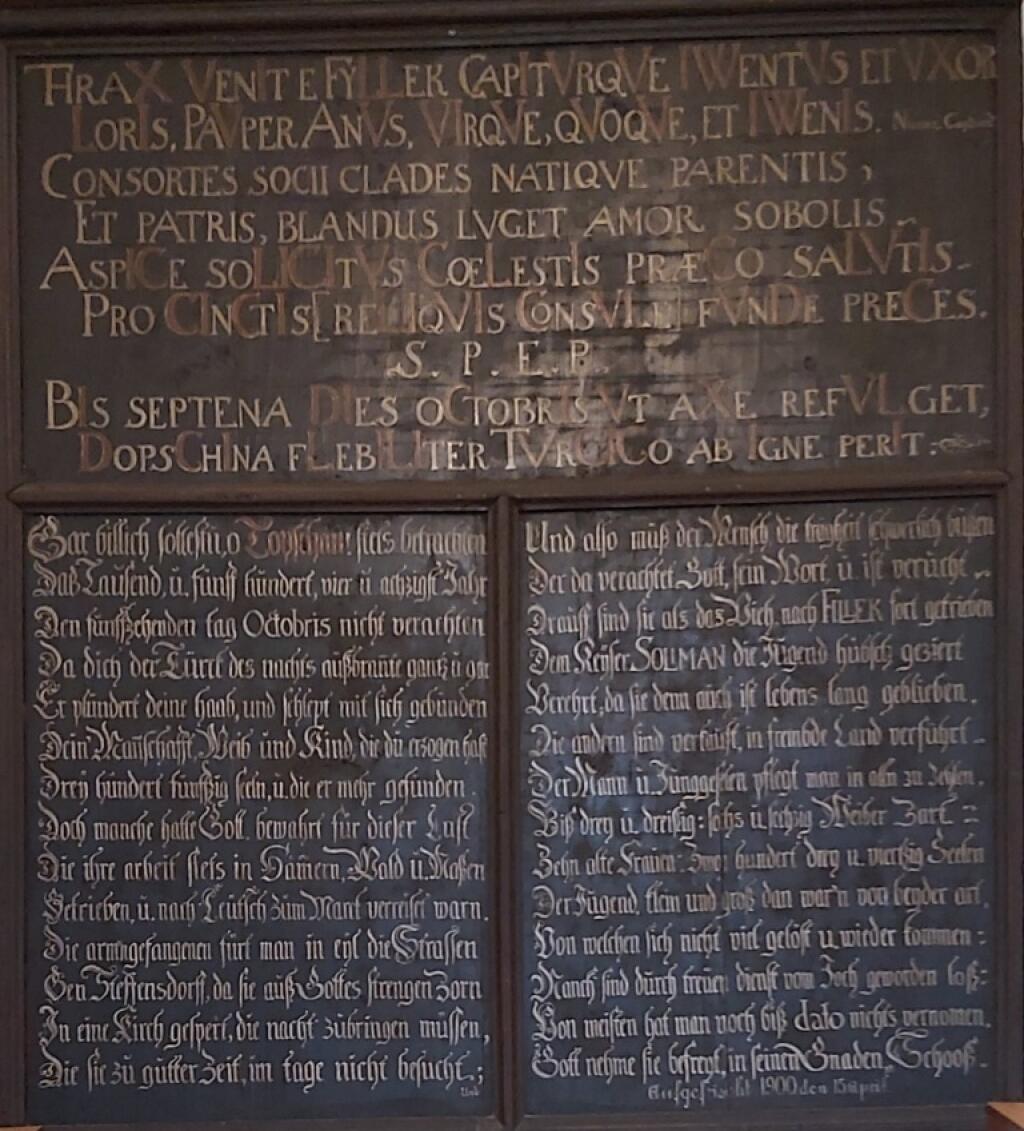 THRAX VENIT E FYLLEK CAPITVRQVE IWENTVS ET VXOR
LORIS, PAVPER ANVS, VIRQVE, QVOQVE, ET IWENIS.
CONSORTES SOCII CLADES NATIQVE PARENTIS,
ET PATRIS, BLANDUS LVGET AMOR SOBOLIS.
ASPICE SOLICITVS COELESTIS PRÆCO SALVTIS.
PRO CINCTIS [RELIQVIS CONSVLE] FVNDE PRECES.
S. P. E. P.
BIS SEPTENA DIES OCTOBRIS VT AXE REFVLGET,
DOPSCHINA FLEBILITER TVRCICO AB IGNE PERIT.
Gar billich soltestu, o Topschau! stets betrachten
Daß Tausend, u. fünff hundert, vier u achzigst Jahr
Den fünffzehenden tag Octobris nicht verachten
Da dich der Türck des nachts außbrante gantz u gar
Er plündert deine haab, und schlept mit sich gebunden
Dein Manschafft, Weib und Kind, die du erzogen hast
Drey hundert funffzig seeln, u. die er mehr gefunden.
Doch manche hatte Gott bewahrt für dieser Last
Die ihre arbeit stets in Hamern, Wald u. Maßen
Getrieben, u. nach Leutsch zum Mark verreiset warn.
Die armengefangenen fürt man in eyl die Strassen
Gen Steffensdorff, da sie auß Gottes strengen Zorn
In eine Kirch gespert, die nacht zubringen müssen,
Die sie zu gutter Zeit, im tage nicht besucht.;
Und
Und also muß der Mensch die tragheit schwerlich büssen
Der da verachtet Gott, sein Wort u. ist verucht
Drauff sind sie als das Vieh nach FILLEK fort getrieben
Dem Keyser SOLIMAN die Jugend hübsch geziert
Verehrt, da sie denn auch ist lebens lang geblieben.
Die andern sind verkaufft, in frembde Land verführt
Der Mann u. Junggeslen pflegt man in alln zu Zehlen.
Biß drey u. dreißig: sechs u sechzig Weiber Zart
Zehn alte Frauen: Zwey hundert drey u. viertzig Seelen
Der Jugend, klein und groß dan war'n von beyder art.
Von welchen sich nicht viel gelöst u. wieder kommen:
Manch sind durch treuen dienst vom Joch geworden loß:
Von meisten hat man noch biß dato nichts vernomen.
Gott nehme sie befreyt, in seinen Gnaden Schooß.
Aufgefrischt 1900 den 15 April